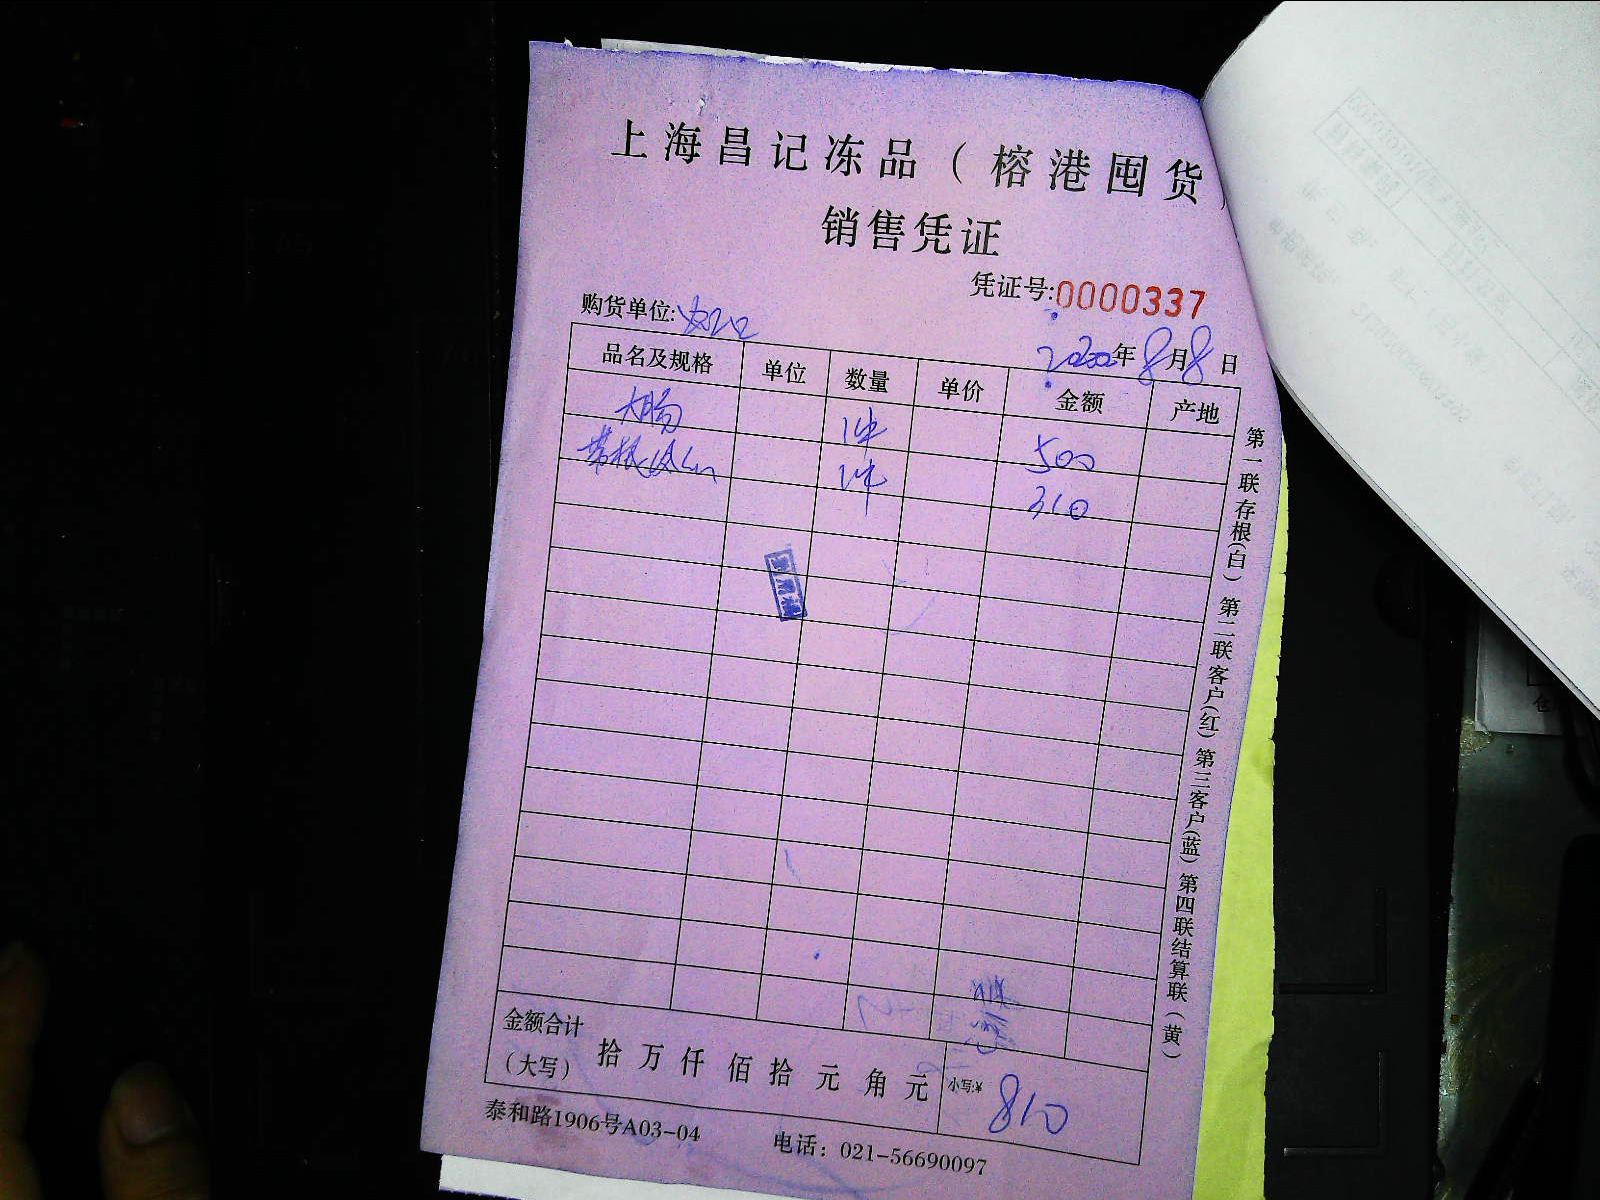 上海昌记冻品（榕港囤货）
销售凭证
凭证号:0000337
购货单位:
2020年8月8日
品名及规格 单位 数量 单价 金额 产地
大肠 1件 500
带根 1件 310
金额合计
（大写） 拾 万 仟 佰 拾 元 角 元 小写:¥ 810
泰和路1906号A03-04 电话：021-56690097
第一联存根(白) 第二联客户(红) 第三客户(蓝) 第四联结算联(黄)